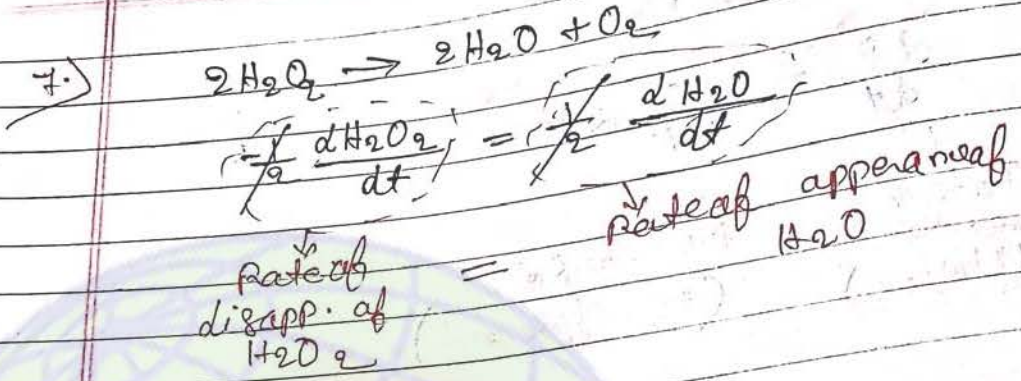 7.) 2H2O2 → 2H2O + O2
-1/2 dH2O2/dt = 1/2 dH2O/dt
Rate of disapp. of H2O2 = Rate of apperance of H2O